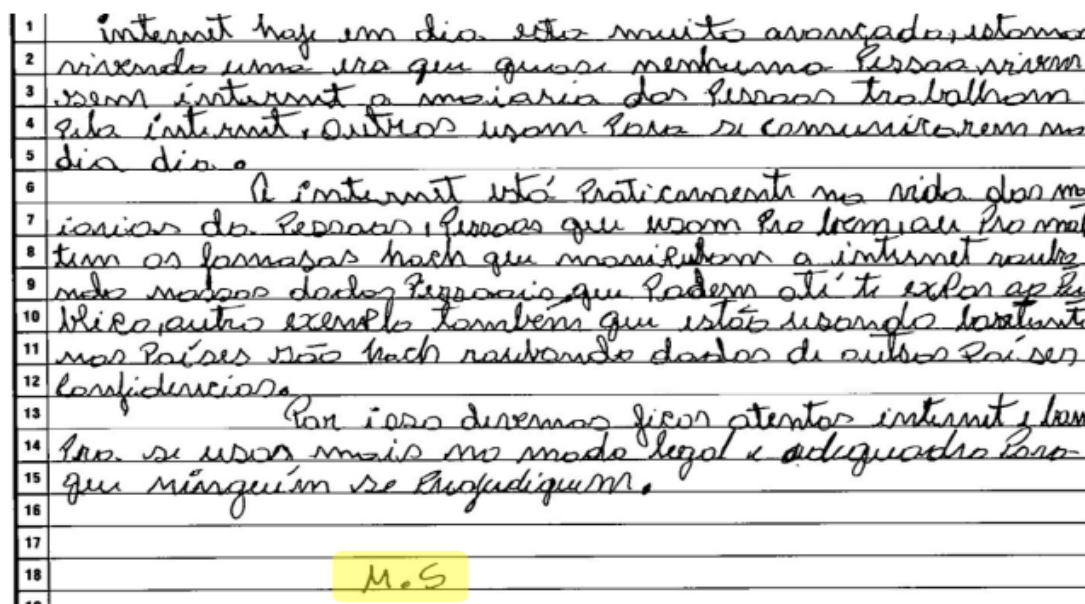 1 internet hoje em dia esta muito avançado, estamo
2 vivendo uma era que quase nenhuma Pessoa vivem
3 sem internet a maioria das Pessoas trabalham
4 Pela internet, outros usam Para se comunicarem no
5 dia dia.
6 A internet está Praticamente na vida das ma
7 iorias da Pessoas, Pessoas que usam Pro bem, ou Pro mal
8 tem os famosas hach que manipulam a internet rouba
9 ndo nossos dados Pessoais, que Podem até te expor ao Pu
10 blico, outro exemplo também que estão usando bastante
11 nos Países são hach roubando dados de outros Países
12 Confidencias.
13 Por isso devemos ficar atentos internet e bom
14 Pra se usar mais no modo legal e adequadro Para
15 que ninguém se Prejudiquem.
16
17
18 M.S